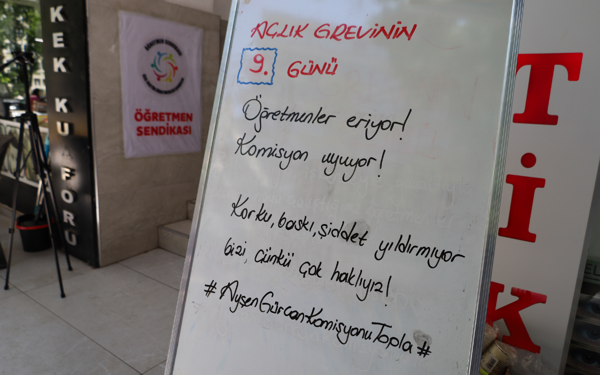 AÇLIK GREVİNİN
9. GÜNÜ
Öğretmenler eriyor!
Komisyon uyuyor!
Korku, baskı, şiddet yıldırmıyor
bizi, çünkü çok haklıyız!
#AyşenGürcanKomisyonuTopla#
ÖĞRETMEN
SENDİKASI
KEK KUAFÖRÜ
TİK